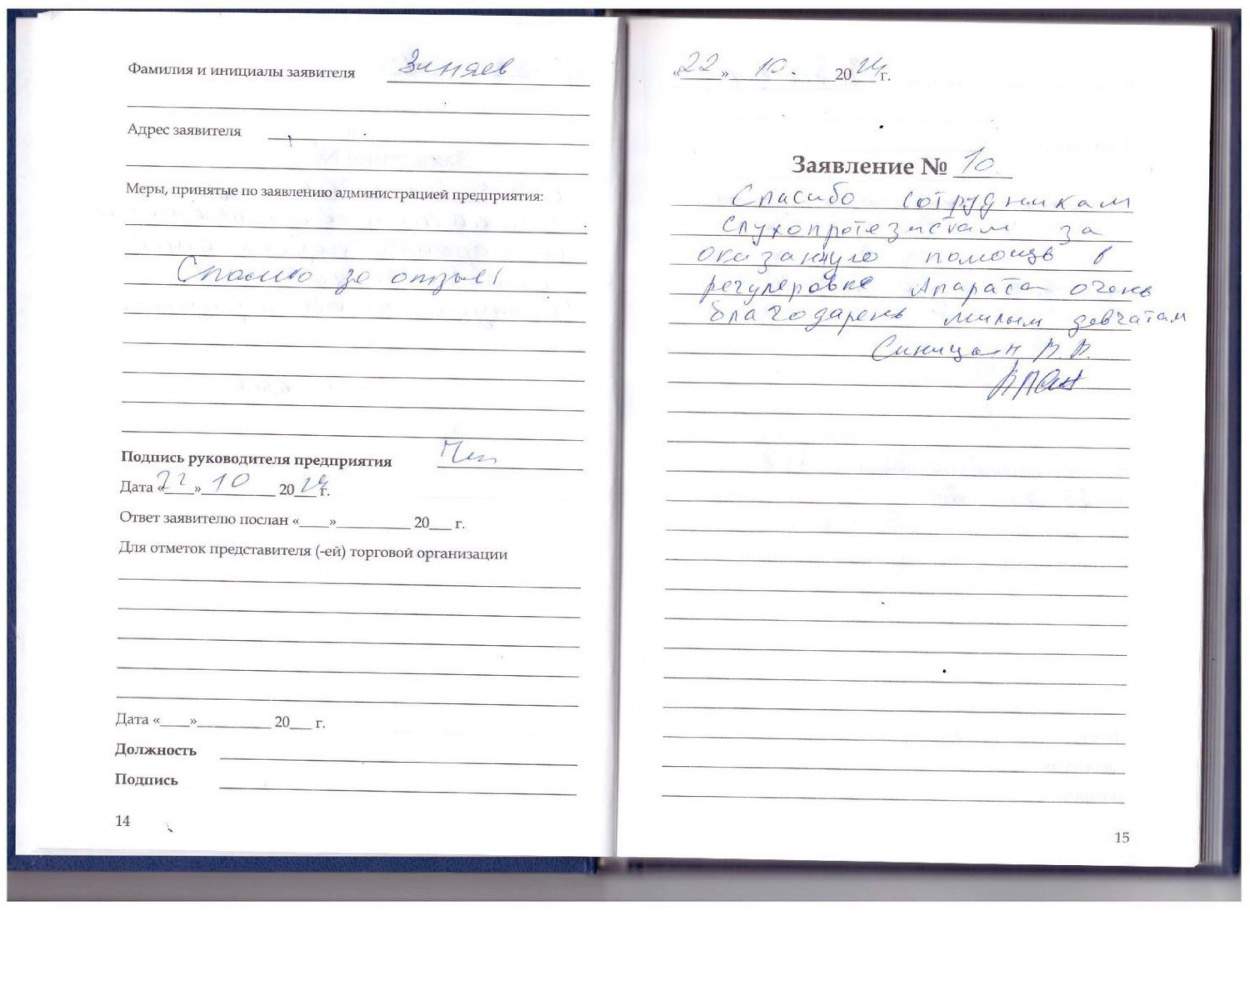 Фамилия и инициалы заявителя Зиняев
Адрес заявителя
Меры, принятые по заявлению администрацией предприятия:
Спасибо за отзыв!
Подпись руководителя предприятия
Дата «22» 10 2024 г.
Ответ заявителю послан «___»__________ 20___ г.
Для отметок представителя (-ей) торговой организации
Дата «___»__________ 20___ г.
Должность
Подпись
14
«22» 10. 2024 г.
Заявление № 10
Спасибо сотрудникам
слухопротезистам за
оказанную помощь в
регулеровке Апарата очень
благодарень милым девчатам
Синицын В.В.
15